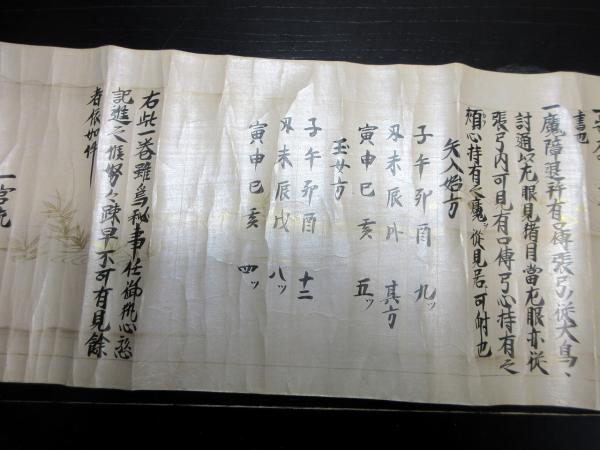 書也
一魔障退粁有口傳張弓従大鳥、
討通以尤眼見猪目當尤眼亦従
張弓内可見有口傳弓心持有之
類心持有之魔ッ従見名可射也
矢入始方
子午卯酉 九ッ
丑未辰外 其方
寅申巳亥 五ッ
玉女方
子午卯酉 十二
丑未辰戌 八ッ
寅申巳亥 四ッ
右此一巻雖為秘事仕御執心憑
記進之候努々疎早不可有見餘
者依如件
一宮流